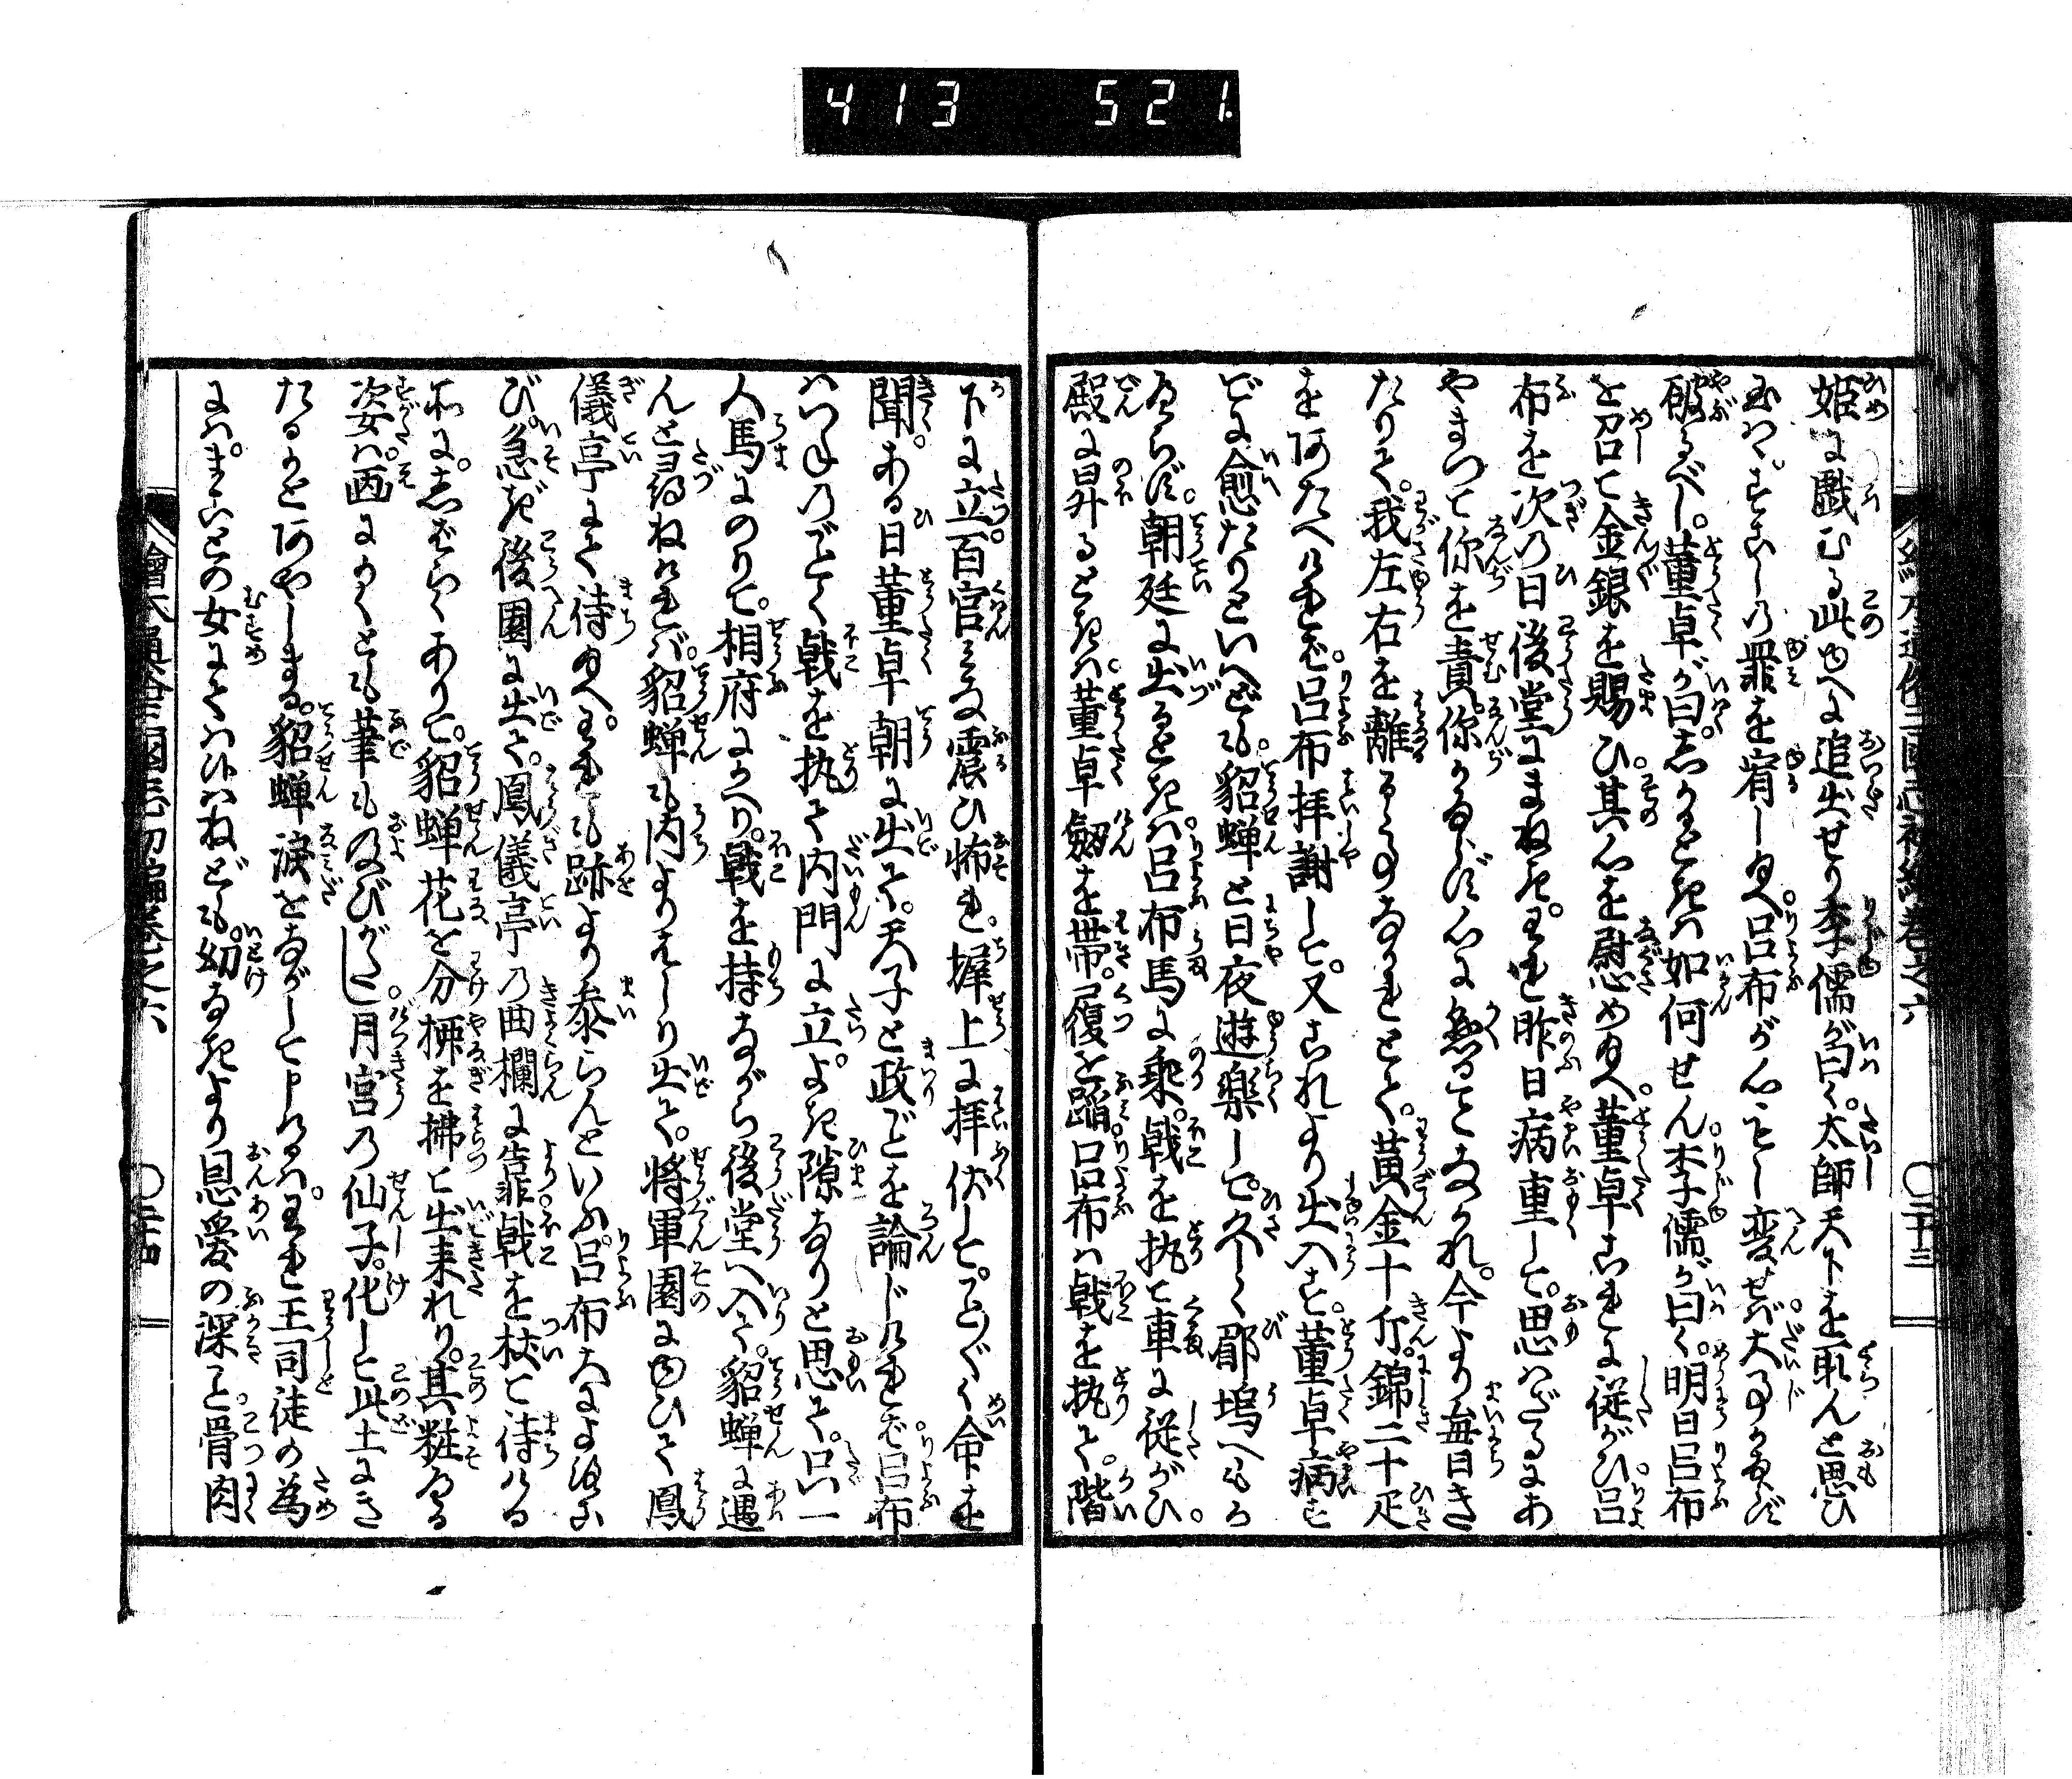 413 521
繪本通俗三國志初編巻之六 〇二十三
姫に戯むる此ゆへに追出せり李儒が曰く太師天下を取んと思ひ
玉はゞすこしの罪を宥し玉へ呂布が心もし変せば大事かならず
破るべし董卓が曰しからば如何せん李儒が曰く明日呂布
を召て金銀を賜ひ其心を慰め玉へ董卓これに従がひ呂
布を次の日後堂にまねきわれ昨日病重して思はざるにあ
やまつて你を責你かならず心に懸ることなかれ今より毎日き
たりて我左右を離るゝ事なかれとて黄金十斤錦二十疋
をあたへければ呂布拝謝して又これより出入す董卓病す
でに愈たりといへども貂蝉と日夜遊楽して久しく郿塢へもか
へらず朝廷に出るときは呂布馬に乗戟を執て車に従がひ
殿に昇るときは董卓劔を帯履を踏呂布は戟を執て階
下に立百官みな震ひ怖れ墀上に拝伏してことごとく命を
聞ある日董卓朝に出て天子と政ごとを論じければ呂布
はつねのごとく戟を執て内門に立よき隙なりと思て只一
人馬にのりて相府にかへり戟を持ながら後堂へ入て貂蝉に遇
んと尋ねければ貂蝉も内よりはしり出て将軍園にゆひて鳳
儀亭にて待玉へわれも跡より参らんといふ呂布大によろこ
び急ぎ後園に出て鳳儀亭の曲欄に靠戟を杖て待ける
所にしばらくありて貂蝉花を分栁を拂て出来れり其粧へる
姿は画にかくとも筆も及びがたし月宮の仙子化して此土にき
たるかとあやしまる貂蝉涙をながして申けるはわれ王司徒の為
にはまことの女にてはひはねども幼なきより恩愛の深こと骨肉
繪本通俗三國志初編巻之六 〇二十四